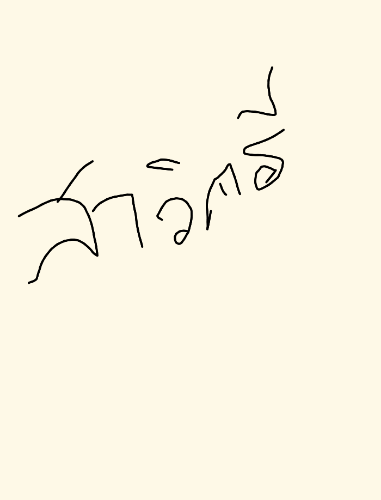 สาวิตรี